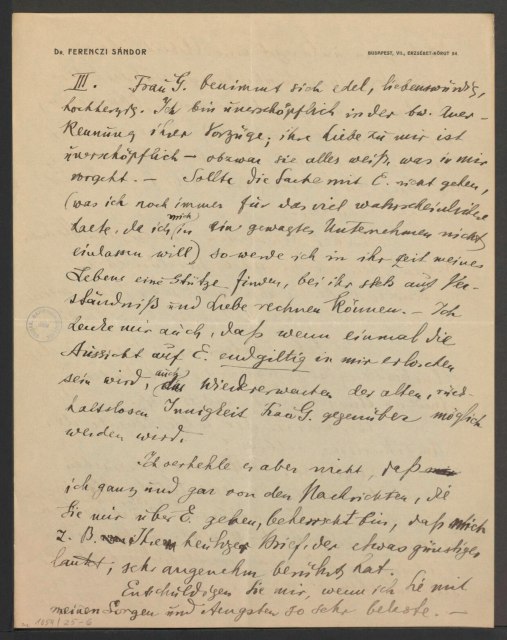 Dr. FERENCZI SÁNDOR
BUDAPEST, VII., ERZSÉBET-KÖRUT 54
III. Frau G. benimmt sich edel, liebenswürdig,
hochherzig. Ich bin unerschöpflich in der bw. Aner-
kennung ihrer Vorzüge; ihre Liebe zu mir ist
unerschöpflich – obzwar sie alles weiß, was in mir
vorgeht. – Sollte die Sache mit E. nicht gehen,
(was ich noch immer für das viel wahrscheinlichere
halte, da ich mich in ein gewagtes Unternehmen nicht
einlassen will) so werde ich in ihr zeit meines
Lebens eine Stütze finden, bei ihr stets auf Ver-
ständniß und Liebe rechnen können. – Ich
denke mir auch, daß wenn einmal die
Aussicht auf E. endgiltig in mir erloschen
sein wird, auch das Wiedererwachen der alten, rück-
haltslosen Innigkeit Frau G. gegenüber möglich
werden wird.
Ich verhehle es aber nicht, daß
ich ganz und gar von den Nachrichten, die
Sie mir über E. geben, beherrscht bin, daß mich
z. B. Ihr heutiger Brief, der etwas günstiger
lautet, sehr angenehm berührt hat.
Entschuldigen Sie mir, wenn ich Sie mit
meinen Sorgen und Aengsten so sehr belaste. –
1054/25-6